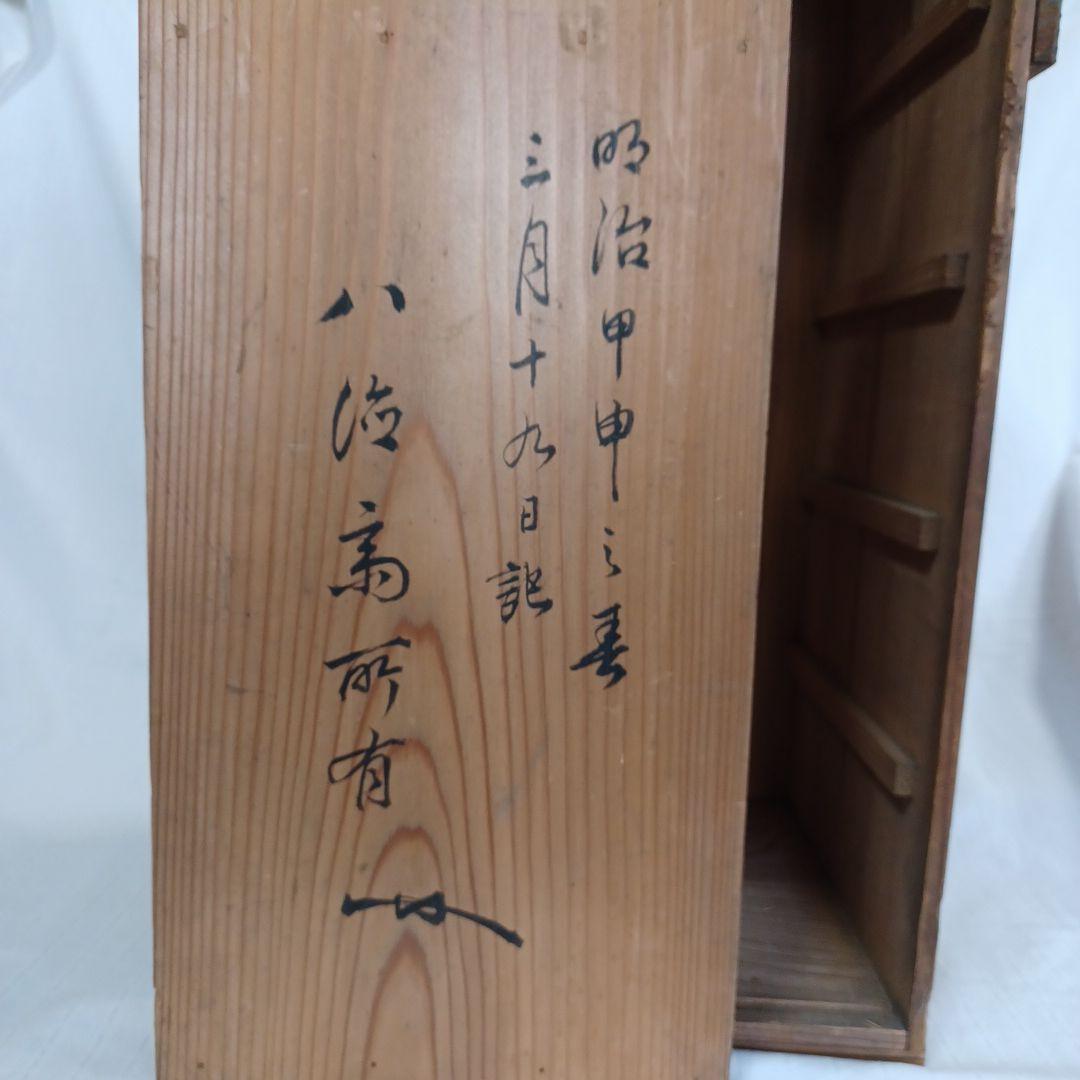 明治甲申之春
三月十九日記
八澁斎所有